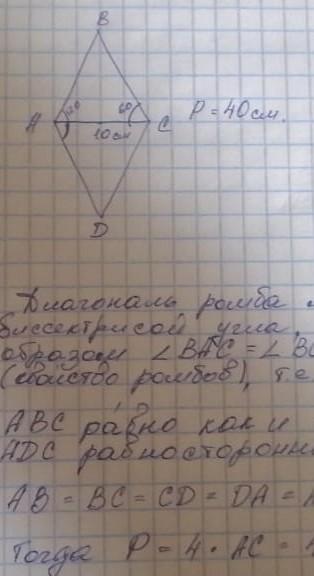 B
120 60
A C P = 40 см.
10 см
D
Диагональ ромба
биссектрисой угла.
образом ∠BAC = ∠BC
(свойство ромбов), т.е
ABC равно как и
ADC равносторонн
AB = BC = CD = DA =
Тогда P = 4 · AC =